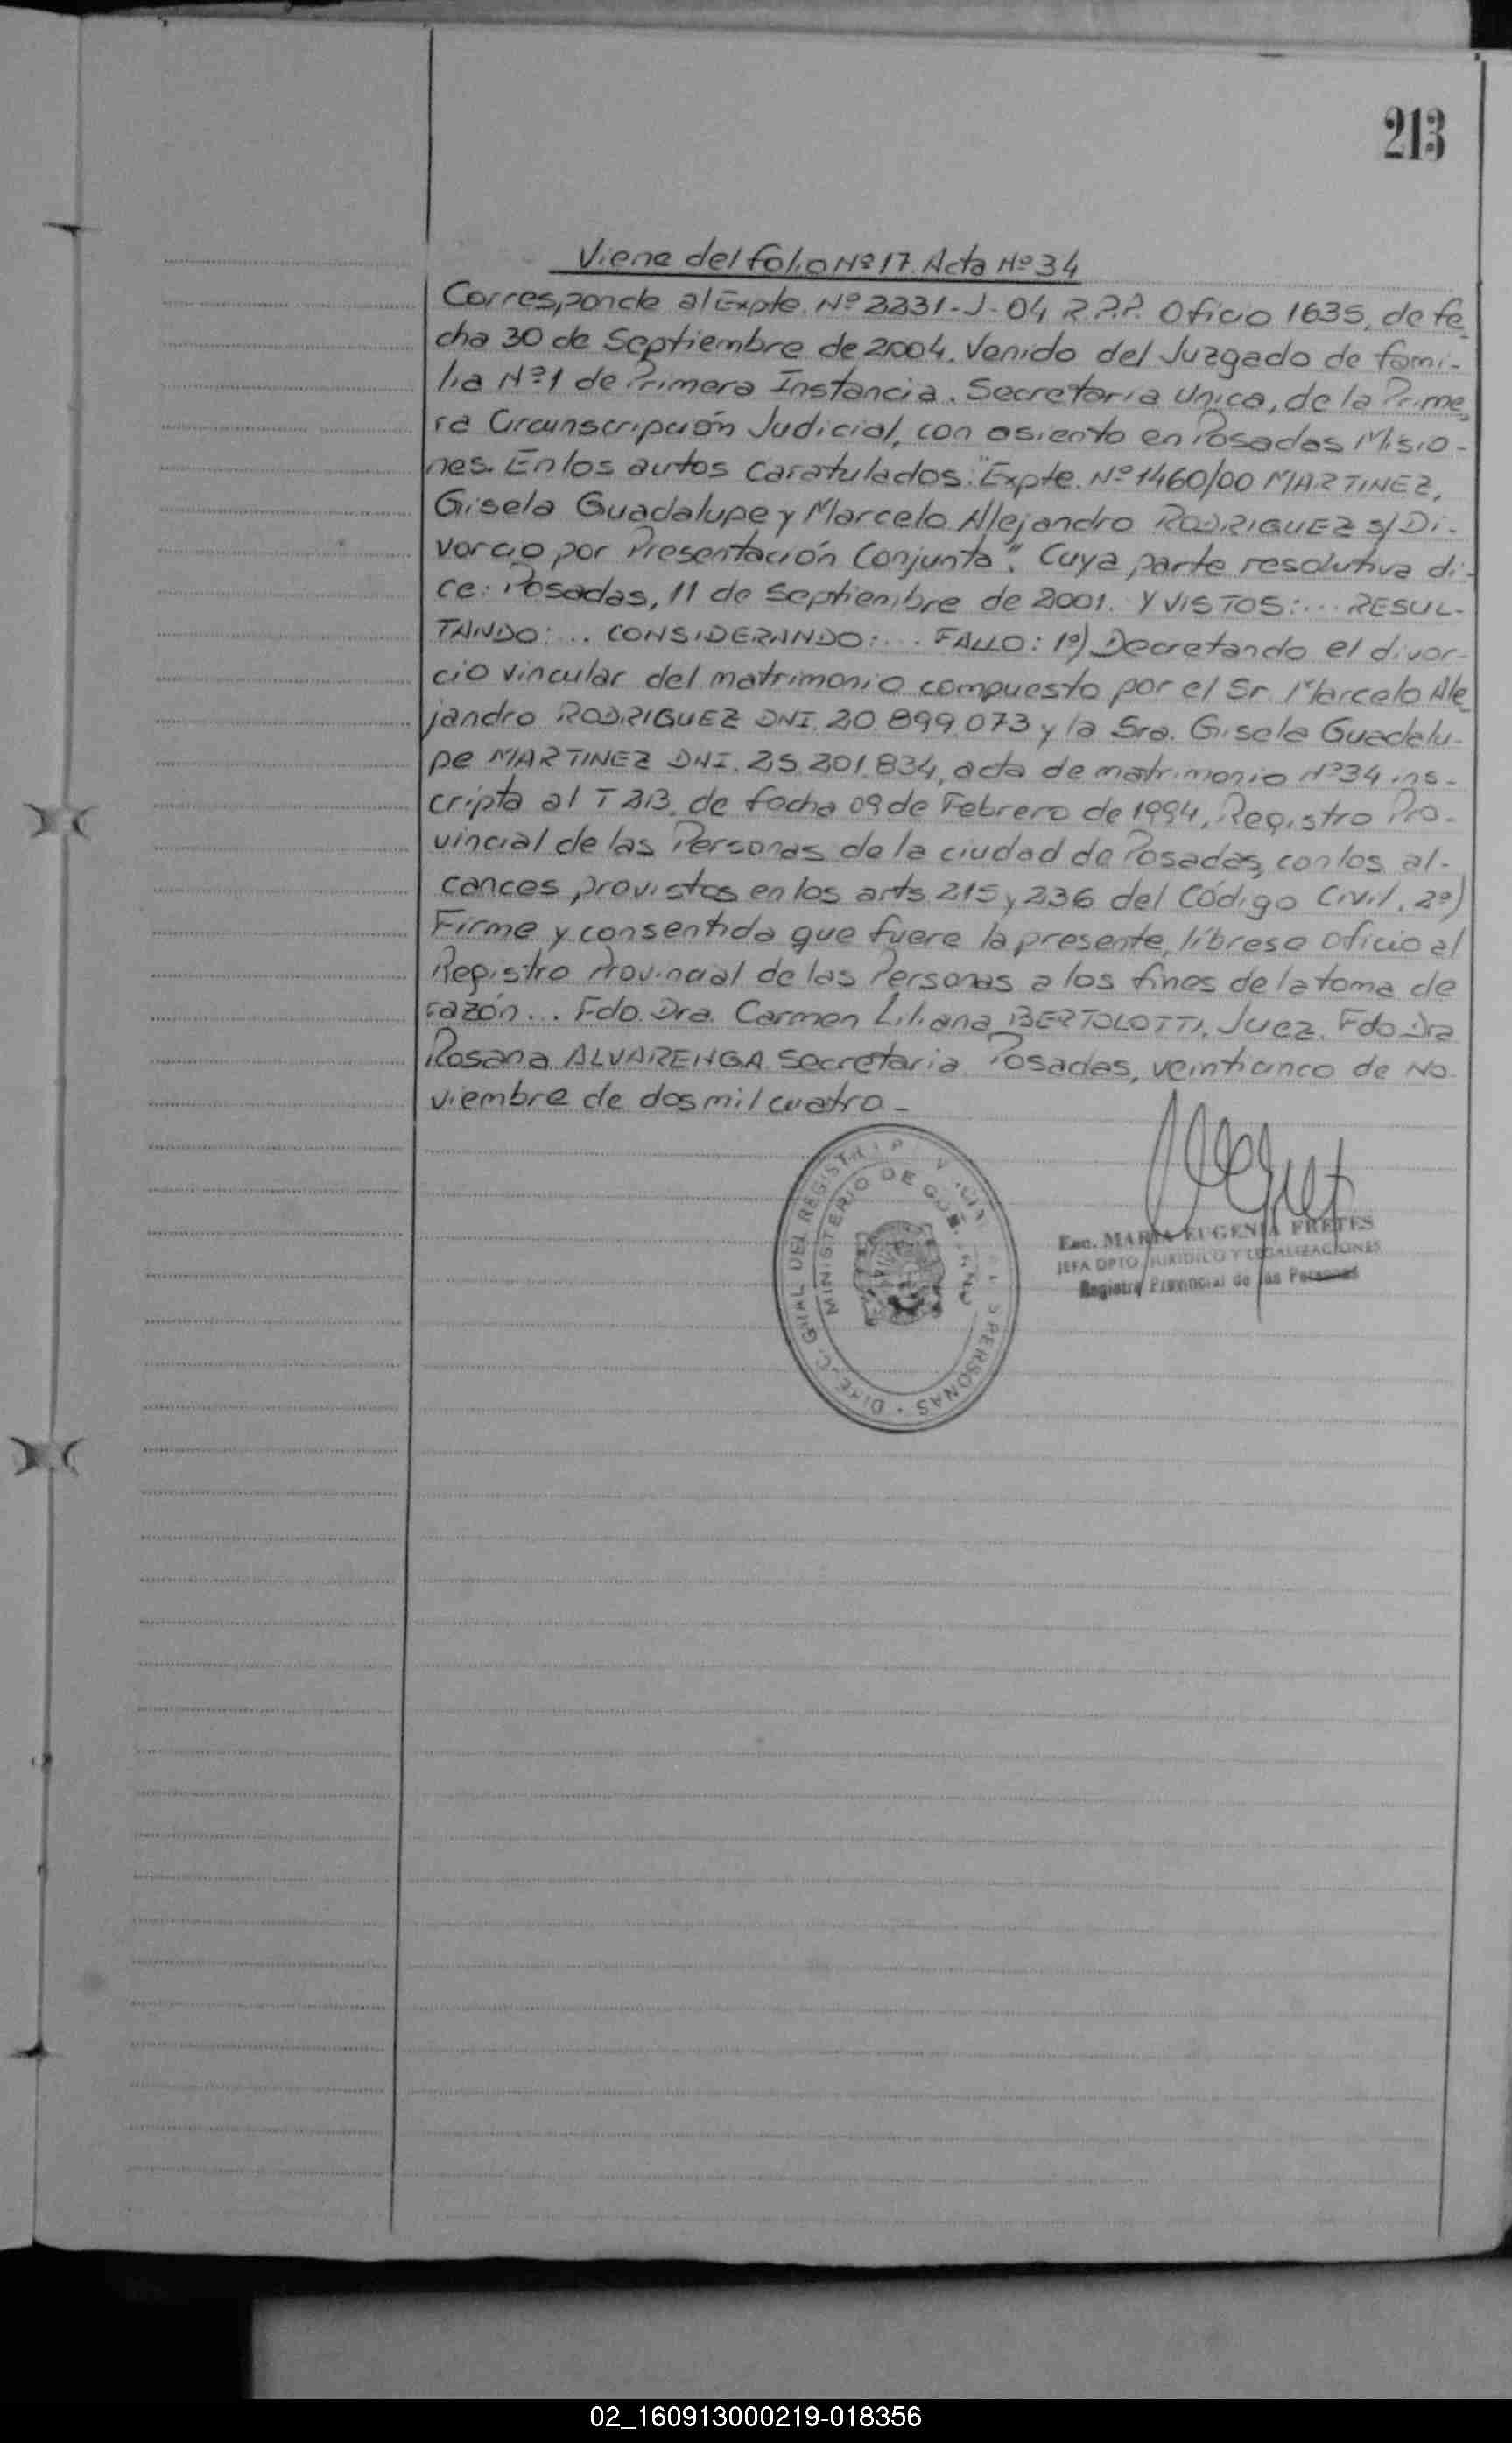 213
Viene del folio Nº 17. Acta Nº 34
Corresponde al Expte. Nº 2231-J-04 R.P.P. Oficio 1635, de fe
cha 30 de Septiembre de 2004. Venido del Juzgado de fami-
lia Nº 1 de Primera Instancia. Secretaria Unica, de la Prime
ra Circunscripción Judicial, con asiento en Posadas Misio-
nes. En los autos caratulados: "Expte. Nº 1460/00 MARTINEZ,
Gisela Guadalupe y Marcelo Alejandro RODRIGUEZ s/ Di-
vorcio por Presentación Conjunta". Cuya parte resolutiva di-
ce: Posadas, 11 de Septiembre de 2001. Y VISTOS:... RESUL-
TANDO:... CONSIDERANDO:... FALLO: 1º) Decretando el divor-
cio vincular del matrimonio compuesto por el Sr. Marcelo Ale
jandro RODRIGUEZ DNI. 20.899.073 y la Sra. Gisela Guadalu-
pe MARTINEZ DNI. 25.201.834, acta de matrimonio Nº 34 ins-
cripta al T 2B. de fecha 09 de Febrero de 1994, Registro Pro-
vincial de las Personas de la ciudad de Posadas, con los al-
cances provistos en los arts. 215 y 236 del Código Civil. 2º)
Firme y consentida que fuere la presente, líbrese oficio al
Registro Provincial de las Personas a los fines de la toma de
razón... Fdo. Dra. Carmen Liliana BERTOLOTTI, Juez. Fdo Dra
Rosana ALVARENGA Secretaria. Posadas, veinticinco de No
viembre de dos mil cuatro-
MINISTERIO DE
GRAL DEL
PERSONAS
Esc. MARIA EUGENIA FRETES
JEFA DPTO. JURIDICO Y LEGALIZACIONES
Registro Provincial de las Personas
02_160913000219-018356